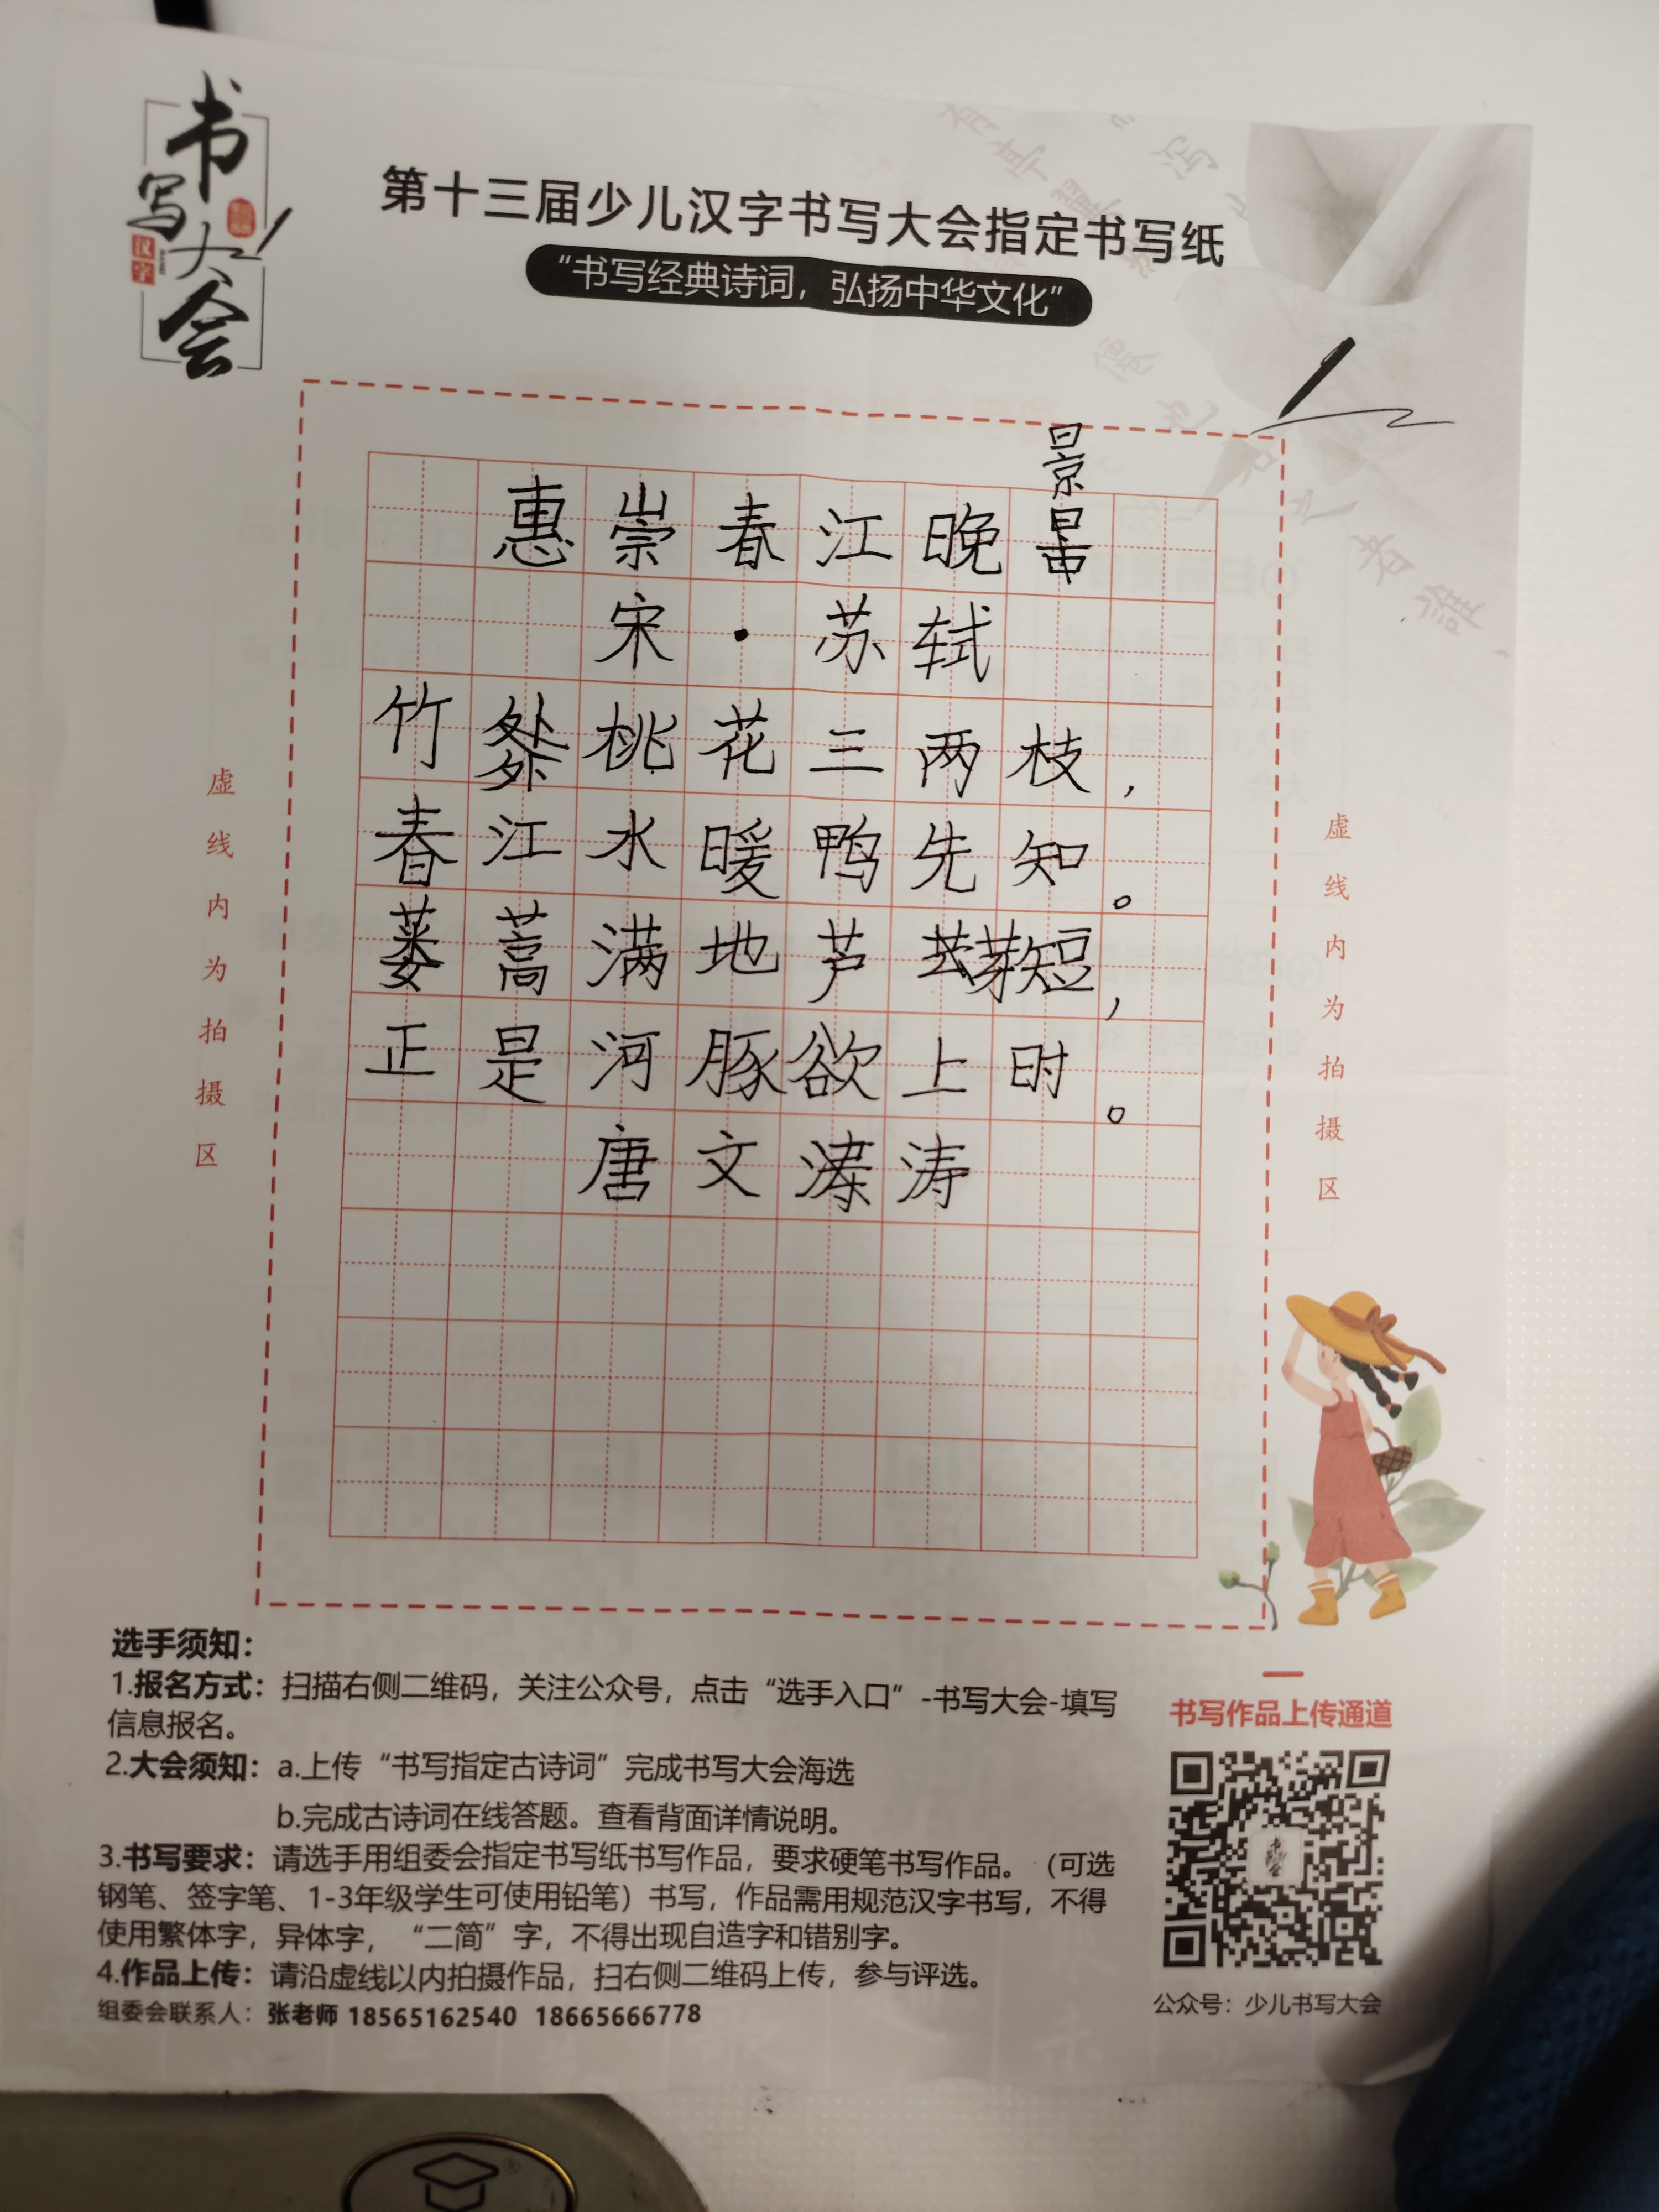 书写大会
汉字
第十三届少儿汉字书写大会指定书写纸
“书写经典诗词，弘扬中华文化”
景
惠崇春江晚
宋·苏轼
竹外外桃花三两枝，
春江水暖鸭先知。
蒌蒿满地芦芽短，
正是河豚欲上时。
唐文涛
虚线内为拍摄区
虚线内为拍摄区
选手须知：
1.报名方式：扫描右侧二维码，关注公众号，点击“选手入口”-书写大会-填写
信息报名。
2.大会须知：a.上传“书写指定古诗词”完成书写大会海选
b.完成古诗词在线答题。查看背面详情说明。
3.书写要求：请选手用组委会指定书写纸书写作品，要求硬笔书写作品。（可选
钢笔、签字笔、1-3年级学生可使用铅笔）书写，作品需用规范汉字书写，不得
使用繁体字，异体字，“二简”字，不得出现自造字和错别字。
4.作品上传：请沿虚线以内拍摄作品，扫右侧二维码上传，参与评选。
组委会联系人：张老师 18565162540 18665666778
书写作品上传通道
公众号：少儿书写大会